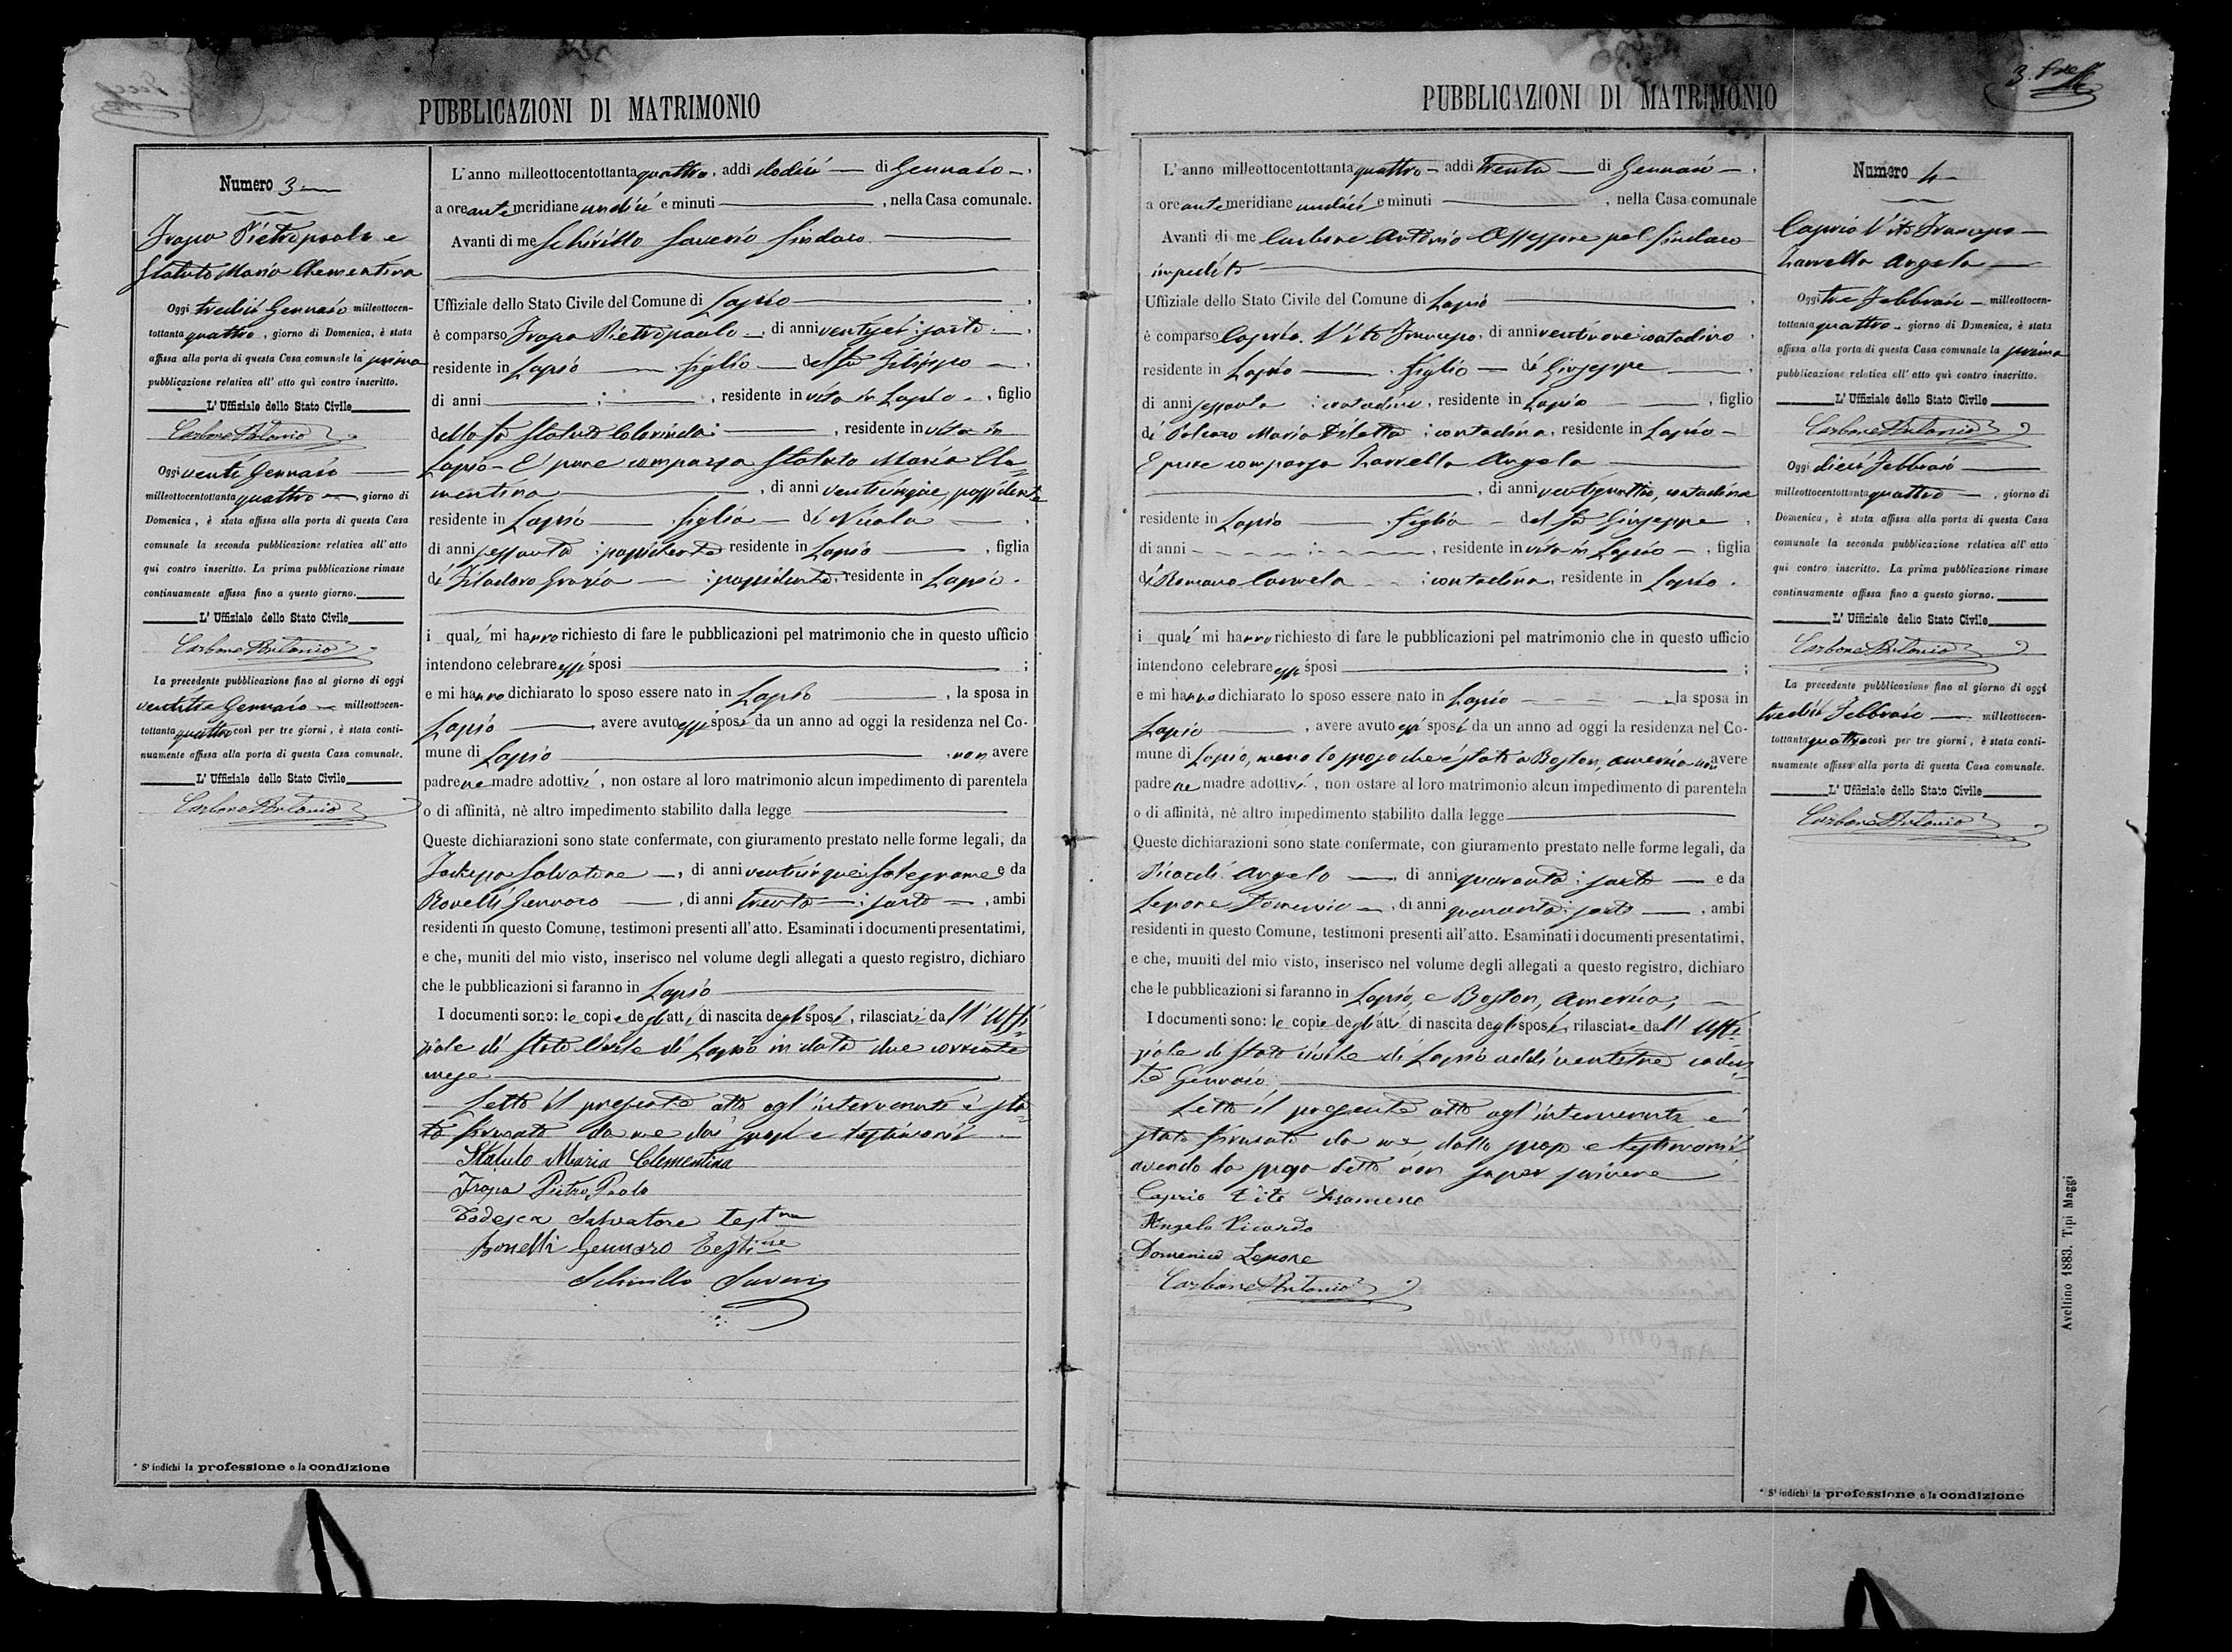 PUBBLICAZIONI DI MATRIMONIO
Numero 3
Trapa Pietropaolo e
Statuto Maria Clementina
Oggi tredici Gennaio milleottocen-
tottanta quattro, giorno di Domenica, è stata
affissa alla porta di questa Casa comunale la prima
pubblicazione relativa all' atto quì contro inscritto.
L' Uffiziale dello Stato Civile
Carbone Antonio
Oggi venti Gennaio
milleottocentottanta quattro giorno di
Domenica, è stata affissa alla porta di questa Casa
comunale la seconda pubblicazione relativa all' atto
qui contro inscritto. La prima pubblicazione rimase
continuamente affissa fino a questo giorno.
L' Uffiziale dello Stato Civile
Carbone Antonio
La precedente pubblicazione fino al giorno di oggi
ventitre Gennaio milleottocen-
tottanta quattro così per tre giorni, è stata conti-
nuamente affissa alla porta di questa Casa comunale.
L' Uffiziale dello Stato Civile
Carbone Antonio
* S' indichi la professione o la condizione
L' anno milleottocentottanta quattro, addì dodici di Gennaio,
a ore ante meridiane undici e minuti , nella Casa comunale.
Avanti di me Schirillo Saverio Sindaco
Uffiziale dello Stato Civile del Comune di Lapio
è comparso Trapa Pietropaolo, di anni ventisei; sarto,
residente in Lapio figlio del fu Filippo,
di anni ; , residente in vita in Lapio, figlio
della fu Statuto Colorinda; , residente in vita in
Lapio - E' pure comparsa Statuto Maria Cle=
mentina , di anni venticinque, possidente
residente in Lapio figlia di Nicola ,
di anni sessanta; possidente residente in Lapio , figlia
di Filadoro Grazia ; possidente, residente in Lapio.
i quali mi hanno richiesto di fare le pubblicazioni pel matrimonio che in questo ufficio
intendono celebrare essi sposi ;
e mi hanno dichiarato lo sposo essere nato in Lapio , la sposa in
Lapio , avere avuto essi sposi da un anno ad oggi la residenza nel Co-
mune di Lapio , non avere
padre ne madre adottivi, non ostare al loro matrimonio alcun impedimento di parentela
o di affinità, nè altro impedimento stabilito dalla legge
Queste dichiarazioni sono state confermate, con giuramento prestato nelle forme legali, da
Todesca Salvatore, di anni venticinque; falegname e da
Bonelli Gennaro , di anni trenta ; sarto , ambi
residenti in questo Comune, testimoni presenti all' atto. Esaminati i documenti presentatimi,
e che, muniti del mio visto, inserisco nel volume degli allegati a questo registro, dichiaro
che le pubblicazioni si faranno in Lapio
I documenti sono: le copie degli atti di nascita degli sposi, rilasciate dall' Uffi=
ziale di Stato Civile di Lapio in data due corrente
mese
Letto il presente atto agl' intervenuti è sta=
to firmato da me dai sposi e testimonii
Statuto Maria Clementina
Trapa Pietro Paolo
Todesca Salvatore test.ne
Bonelli Gennaro Testi.ne
Schirillo Saverio
PUBBLICAZIONI DI MATRIMONIO
L' anno milleottocentottanta quattro addì trenta di Gennaio ,
a ore ante meridiane undici e minuti , nella Casa comunale
Avanti di me Carbone Antonio Assessore pel Sindaco
impedito
Uffiziale dello Stato Civile del Comune di Lapio
è comparso Caprio Vito Francesco, di anni ventinove contadino,
residente in Lapio figlio di Giuseppe ,
di anni sessanta ; contadino, residente in Lapio , figlio
di Maria ; contadina, residente in Lapio
E pure comparsa Zarrella Angela
, di anni ventiquattro, contadina
residente in Lapio figlia del fu Giuseppe ,
di anni ; , residente in vita in Lapio , figlia
di Romano Carmela ; contadina, residente in Lapio.
i quali mi hanno richiesto di fare le pubblicazioni pel matrimonio che in questo ufficio
intendono celebrare essi sposi ;
e mi hanno dichiarato lo sposo essere nato in Lapio , la sposa in
Lapio , avere avuto essi sposi da un anno ad oggi la residenza nel Co-
mune di Lapio, meno lo sposo che è stato a Boston, America non avere
padre ne madre adottivi, non ostare al loro matrimonio alcun impedimento di parentela
o di affinità, nè altro impedimento stabilito dalla legge
Queste dichiarazioni sono state confermate, con giuramento prestato nelle forme legali, da
Angelo , di anni quaranta; sarto e da
Lepore Domenico , di anni quaranta; sarto , ambi
residenti in questo Comune, testimoni presenti all' atto. Esaminati i documenti presentatimi,
e che, muniti del mio visto, inserisco nel volume degli allegati a questo registro, dichiaro
che le pubblicazioni si faranno in Lapio, e Boston, America,
I documenti sono: le copie degli atti di nascita degli sposi, rilasciate dall Uffi=
ziale di Stato civile di Lapio addi ventitre caden=
te Gennaio
Letto il presente atto agl' intervenuti, e'
stato firmato da me, dallo sposo e testimonii
avendo la sposa detto non saper scrivere
Caprio Vito Francesco
Angelo
Domenico Lepore
Carbone Antonio
Numero 4
Caprio Vito Francesco
Zarrella Angela
Oggi tre Febbraio milleottocen-
tottanta quattro, giorno di Domenica, è stata
affissa alla porta di questa Casa comunale la prima
pubblicazione relativa all' atto quì contro inscritto.
L' Uffiziale dello Stato Civile
Carbone Antonio
Oggi dieci Febbraio
milleottocentottanta quattro , giorno di
Domenica, è stata affissa alla porta di questa Casa
comunale la seconda pubblicazione relativa all' atto
qui contro inscritto. La prima pubblicazione rimase
continuamente affissa fino a questo giorno.
L' Uffiziale dello Stato Civile
Carbone Antonio
La precedente pubblicazione fino al giorno di oggi
tredici Febbraio milleottocen-
tottanta quattro così per tre giorni, è stata conti-
nuamente affissa alla porta di questa Casa comunale.
L' Uffiziale dello Stato Civile
Carbone Antonio
* S' indichi la professione o la condizione
Avellino 1883. Tipi Maggi